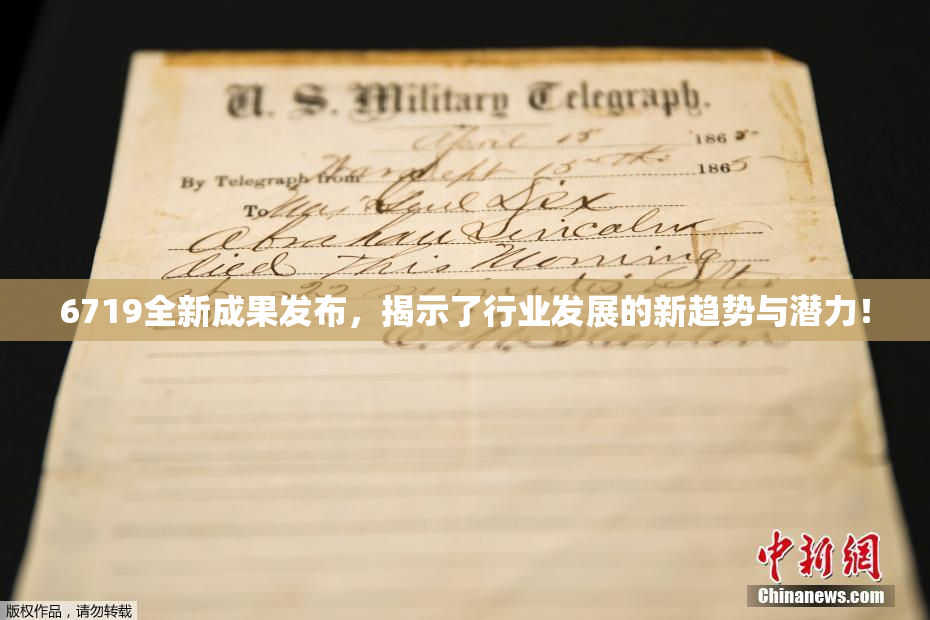 U. S. Military Telegraph.
April 15 1865
By Telegraph from War Dept 15th 1865
To Maj Genl Dix
Abraham Lincoln
died this Morning
at 22 minutes after
6719全新成果发布，揭示了行业发展的新趋势与潜力！
中新网
Chinanews.com
版权作品，请勿转载